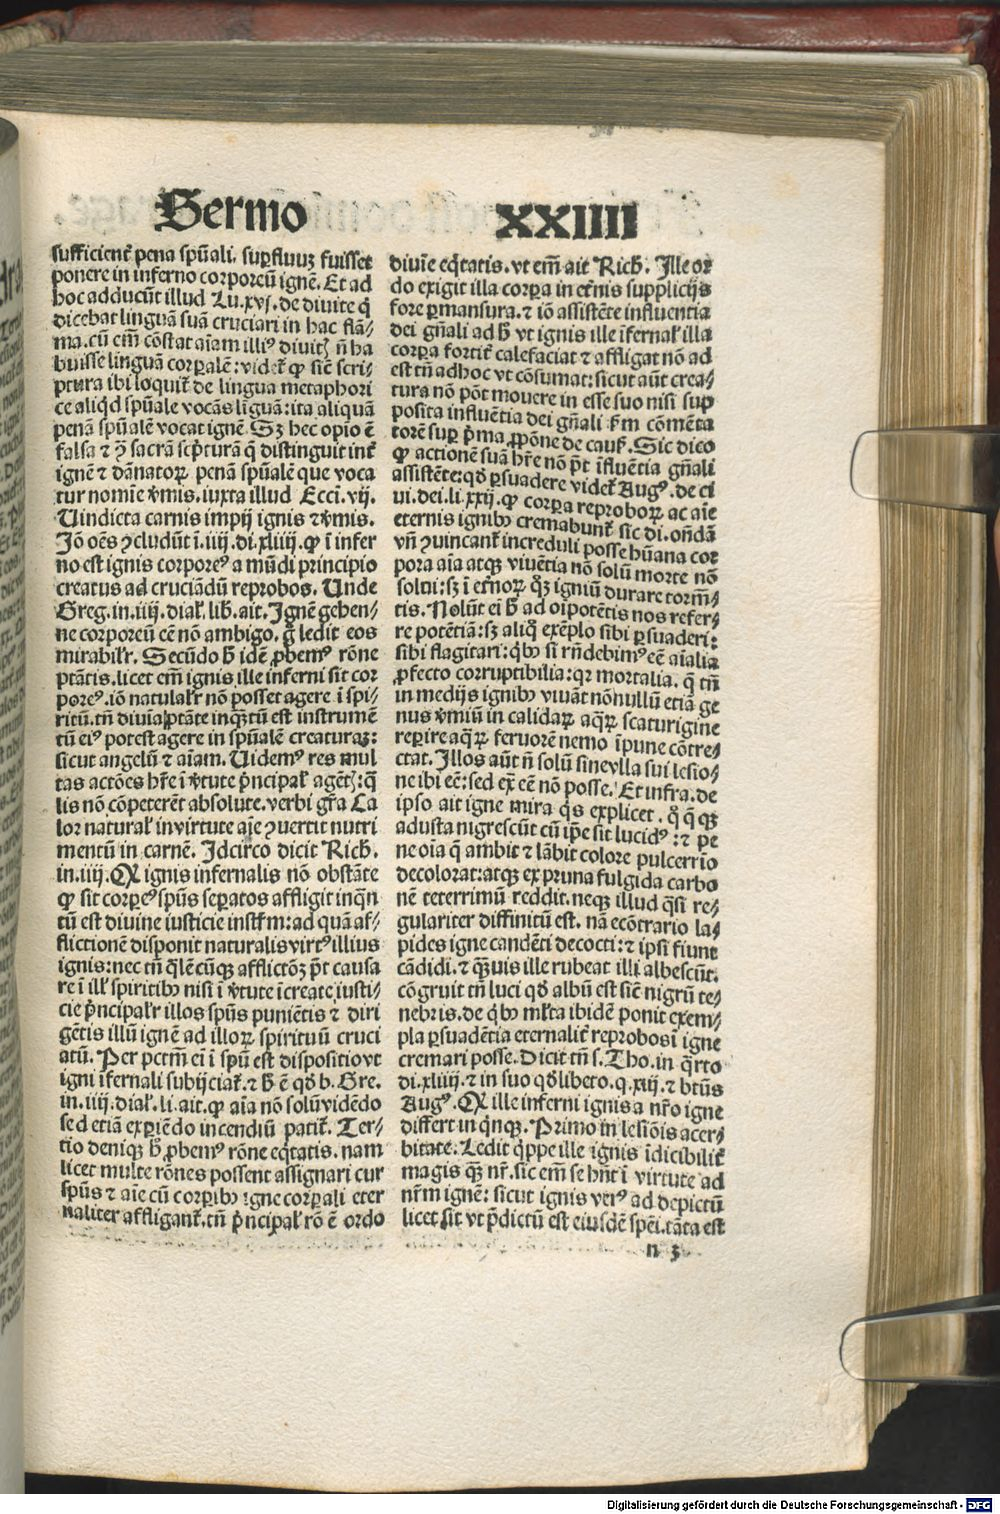 Sermo XXIIII
sufficient᷑ pena sp̃uali. suꝑfluuꝫ fuisset
ponere in inferno corporeũ ignẽ. Et ad
hoc adducũt illud Lu.xvj. de diuite q̃
dicebat linguã suã cruciari in hac flã⸗
ma. cũ em̃ cõstat aĩam illiꝰ diuitꝭ ñ ha
buisse linguã corꝑalẽ: videt᷑ ꝙ sicẽ scri⸗
ptura ibi loquit᷑ de lingua metaphori
ce aliqd̃ sp̃uale vocãs lĩguã: ita aliquã
penã sp̃ualẽ vocat ignẽ. Sꝫ hec opio ẽ
falsa ⁊ ꝯ̃ sacrã scp̃turã q̃ distinguit int᷑
ignẽ ⁊ dãnatoꝝ penã sp̃ualẽ que voca
tur nomĩe v̾mis. iuxta illud Eccĩ. vij.
Vindicta carnis impij ignis ⁊ v̾mis.
Jõ oẽs ꝯcludũt ĩ.iiij.di.xliiij. ꝙ ĩ infer
no est ignis corporeꝰ a mũdi principio
creatus ad cruciãdũ reprobos. Unde
Greg.in.iiij.dial᷑.lib᷑.ait. Jgnẽ gehen⸗
ne corporeũ eẽ nõ ambigo. q̃ ledit eos
mirabilr̃. Secũdo h̃ idẽ ꝓbemꝰ rõne
ptãtis. licet em̃ ignis ille inferni sit cor
poreꝰ. iõ natulalr̃ nõ posset agere ĩ spi
ritũ. tñ diuĩa ptãte inqꝫtũ est instrumẽ
tũ eiꝰ potest agere in sp̃ualẽ creaturaꝫ:
sicut angelũ ⁊ aĩam. Videmꝰ res mul
tas actões hr̃e ĩ v̾tute p̃ncipal᷑ agẽtꝭ: q̃
lis nõ cõpeterẽt absolute. verbi gr̃a Ca
lor natural᷑ in virtute aĩe ꝯuertit nutri
mentũ in carnẽ. Jdcirco dicit Rich.
in.iiij. Qꝫ ignis infernalis nõ obstãte
ꝙ sit corꝑeꝰ sp̃us seꝑatos affligit inqꝫn
tũ est diuine iusticie instr̃m: ad quã af⸗
flictionẽ disponit naturalis virtꝰ illius
ignis: nec tñ q̃lẽcũqꝫ afflictõꝫ p̃t causa
re ĩ ill᷑ spiritibꝰ nisi ĩ v̾tute ĩcreate iusti⸗
cie p̃ncipalr̃ illos sp̃us puniẽtis ⁊ diri
gẽtis illũ ignẽ ad illoꝝ spirituũ cruci
atũ. Per pctm̃ eĩ ĩ sp̃u est dispositio vt
igni ĩfernali subijciat᷑. ⁊ h̃ ẽ qd̃ b. Gre.
in.iiij.dial᷑.li.ait. ꝙ aĩa nõ solũ vidẽdo
sed etiã exꝑiẽdo incendiũ patit᷑. Ter⸗
tio deniqꝫ h̃ ꝓbemꝰ rõne eq̃tatis. nam
licet multe rõnes possent assignari cur
sp̃us ⁊ aĩe cũ corꝑibꝰ igne corꝑali eter
naliter affligant᷑. tñ p̃ncipal᷑ rõ ẽ ordo
diuĩe eq̃tatis. vt em̃ ait Rich. Jlle or
do exigit illa corꝑa in et̾nis supplicijs
fore ꝑmansura. ⁊ iõ assistẽte influentia
dei gñali ad h̃ vt ignis ille ĩfernal᷑ illa
corꝑa fortit᷑ calefaciat ⁊ affligat nõ ad
est tñ ad hoc vt cõsumat: sicut aũt crea⸗
tura nõ põt mouere in esse suo nisi sup
posita influẽtia dei gñali ẜm cõmẽta
torẽ suꝑ p̃ma ꝓpõne de cauẜ. Sic dico
ꝙ actionẽ suã hr̃e nõ p̃t ĩfluẽtia gñali
assistẽte: qd̃ ꝑsuadere videt᷑ Augꝰ. de ci
ui.dei.li.xxij. ꝙ corꝑa reproboꝝ ac aĩe
eternis ignibꝰ cremabunt᷑ sic di. oñdã
vñ ꝯuincant᷑ increduli posse hũana cor
pora aĩa atqꝫ viuẽtia nõ solũ morte nõ
solui: sꝫ ĩ et̾noꝝ qꝫ igniũ durare torm̃⸗
tis. Nolũt eĩ h̃ ad oĩpotẽtis nos refer⸗
re potẽtiã: sꝫ aliq̃ exẽplo sibi ꝑsuaderi:
sibi flagitari: qbꝰ si rñdebimꝰ eẽ aĩalia
ꝓfecto corruptibilia: qꝛ mortalia. q̃ tñ
in medijs ignibꝰ viuãt nõnullũ etiã ge
nus v̾miũ in calidaꝝ aqꝝ scaturigine
reꝑire aqꝝ feruorẽ nemo ĩpune cõtre⸗
ctat. Jllos aũt ñ solũ sine vlla sui lesio⸗
ne ibi eẽ: sed ex̃ eẽ nõ posse. Et infra. de
ipso ait igne mira q̃s explicet. q̃ q̃ qꝫ
adusta nigrescũt cũ ip̃e sit lucidꝰ: ⁊ pe
ne oĩa q̃ ambit ⁊ lãbit colore pulcerrĩo
decolorat: atqꝫ ex pruna fulgida carbo
nẽ teterrimũ reddit. neqꝫ illud q̃si re⸗
gulariter diffinitũ est. nã ecõtrario la⸗
pides igne candẽti decocti: ⁊ ipsi fiunt
cãdidi. ⁊ qꝫuis ille rubeat illi albescũt.
cõgruit tñ luci qd̃ albũ est sicẽ nigrũ te⸗
nebris. de qbꝰ ml᷑ta ibidẽ ponit exem⸗
pla ꝑsuadẽtia eternalit᷑ reprobos ĩ igne
cremari posse. Dicit tñ s. Tho. in q̃rto
di.xliiij. ⁊ in suo qd̃libeto.q.xiij. ⁊ btũs
Augꝰ. Qꝫ ille inferni ignis a nr̃o igne
differt in qnqꝫ. Primo in lesiõis acer⸗
bitate. Ledit q̃ppe ille ignis ĩdicibilit᷑
magis qꝫ nr̃. sic em̃ se hñt ĩ virtute ad
nr̃m ignẽ: sicut ignis verꝰ ad depictũ
licet sit vt p̃dictũ est eiusdẽ spẽi. tãta est
n 3
Digitalisierung gefördert durch die Deutsche Forschungsgemeinschaft - DFG